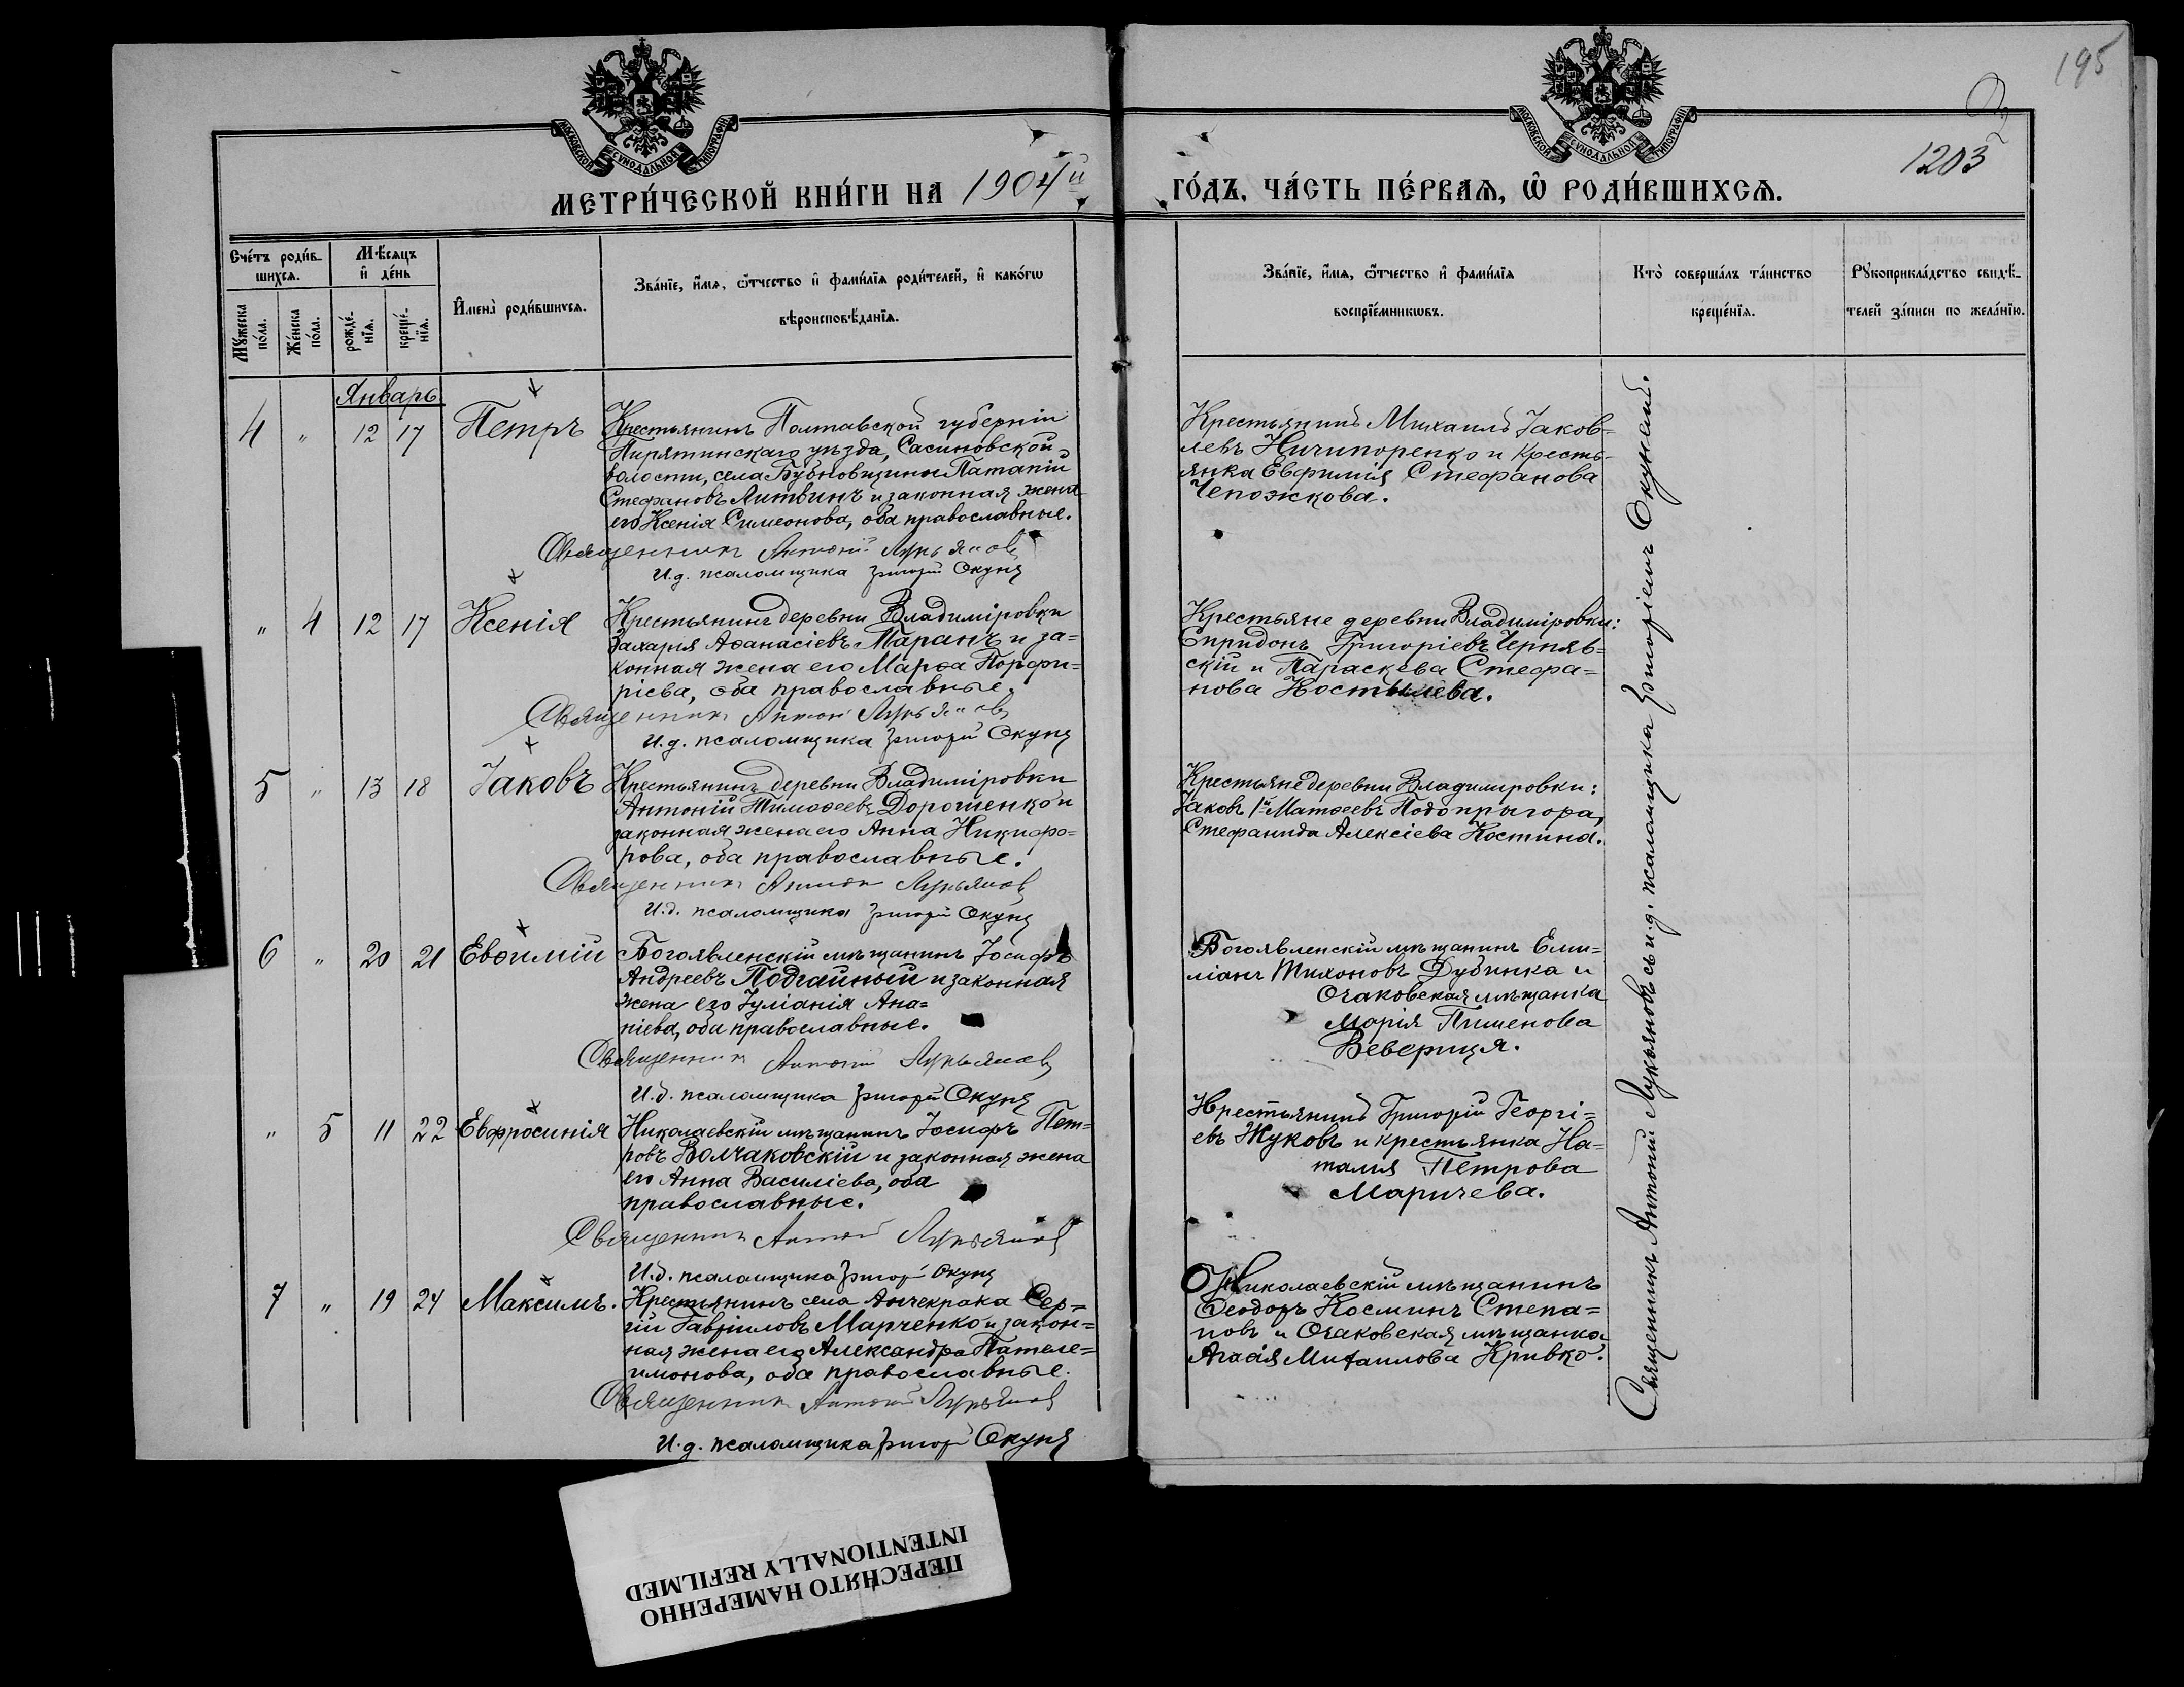 195
1203
МОСКОВСКОЙ СѴНОДАЛЬНОЙ ТИПОГРАФІИ
МОСКОВСКОЙ СѴНОДАЛЬНОЙ ТИПОГРАФІИ
МЕТРИ́ЧЕСКОЙ КНИ́ГИ НА 1904й
ГО́ДЪ, ЧА́СТЬ ПЕ́РВАѦ, Ѿ РОДИ́ВШИХСѦ.
Сче́тъ роди́в-
шихсѧ.
Мꙋ́жеска по́ла.
Же́нска по́ла.
Мѣ́сѧцъ
и҆ де́нь
рожде́-
нїѧ.
креще́-
нїѧ.
И҆мена̀ роди́вшихсѧ.
Зва́нїе, и҆́мѧ, ѻ҆́тчество и҆ фами́лїѧ роди́телей, и҆ како́гѡ
вѣроисповѣ́данїѧ.
Зва́нїе, и҆́мѧ, ѻ҆́тчество и҆ фами́лїѧ
воспрїе́мникѡвъ.
Кто̀ соверша́лъ та́инство
креще́нїѧ.
Рꙋкоприкла́дство свидѣ́-
телей за́писи по жела́нїю.
Январь
4 " 12 17 Петръ
Крестьянинъ Полтавской губерніи
Пирятинскаго уѣзда, Сасиновской
волости, села Бубновщины Патапій
Стефановъ Литвинъ и законная жена
его Ксенія Симеонова, оба православные.
Священникъ Антоній Лукьяновъ
И.д. псаломщика Григорій Окунь
Крестьянинъ Михаилъ Іаков=
левъ Ничипоренко и кресть-
янка Евфимія Стефанова
Чепожкова.
" 4 12 17 Ксенія
Крестьянинъ деревни Владиміровки
Захарія Аѳанасіевъ Маранъ и за=
конная жена его Марѳа Порфи=
ріева, оба православные.
Священникъ Антоній Лукьяновъ
И.д. псаломщика Григорій Окунь
Крестьяне деревни Владиміровки:
Спридонъ Григоріевъ Черняв=
скій и Параскева Стефа=
нова Костылева.
5 " 13 18 Іаковъ
Крестьянинъ деревни Владиміровки
Антоній Тимоѳеевъ Дорошенко и
законная жена его Анна Никифо=
рова, оба православные.
Священникъ Антоній Лукьяновъ
И.д. псаломщика Григорій Окунь
Крестьяне деревни Владиміровки:
Іаковъ 1й Матѳеевъ Подопригора,
Стефанида Алексіева Костина.
6 " 20 21 Евѳимій
Богоявленскій мѣщанинъ Іосифъ
Андреевъ Подгайный и законная
жена его Іуліанія Ана=
ніева, оба православные.
Священникъ Антоній Лукьяновъ
И.д. псаломщика Григорій Окунь
Богоявленскій мѣщанинъ Еми=
ліанъ Тихоновъ Дубинка и
Очаковская мѣщанка
Марія Пименова
Веверица.
" 5 11 22 Евфросинія
Николаевскій мѣщанинъ Іосифъ Пет=
ровъ Волчаковскій и законная жена
его Анна Василіева, оба
православные.
Священникъ Антоній Лукьяновъ
И.д. псаломщика Григорій Окунь
Крестьянинъ Григорій Георгі=
евъ Жуковъ и крестьянка На=
талія Петрова
Маричева.
7 " 19 24 Максимъ.
Крестьянинъ села Анчекрака Сер=
гій Гавріиловъ Марченко и закон=
ная жена его Александра Пателе=
имонова, оба православные.
Священникъ Антоній Лукьяновъ
И.д. псаломщика Григорій Окунь
Николаевскій мѣщанинъ
Ѳеодоръ Косминъ Степа=
новъ и Очаковская мѣщанка
Агаѳія Михаилова Кривко.
Священникъ Антоній Лукьяновъ съ и.д. псаломщика Григоріемъ Окунемъ.
ПЕРЕСНЯТО НАМЕРЕННО
INTENTIONALLY REFILMED